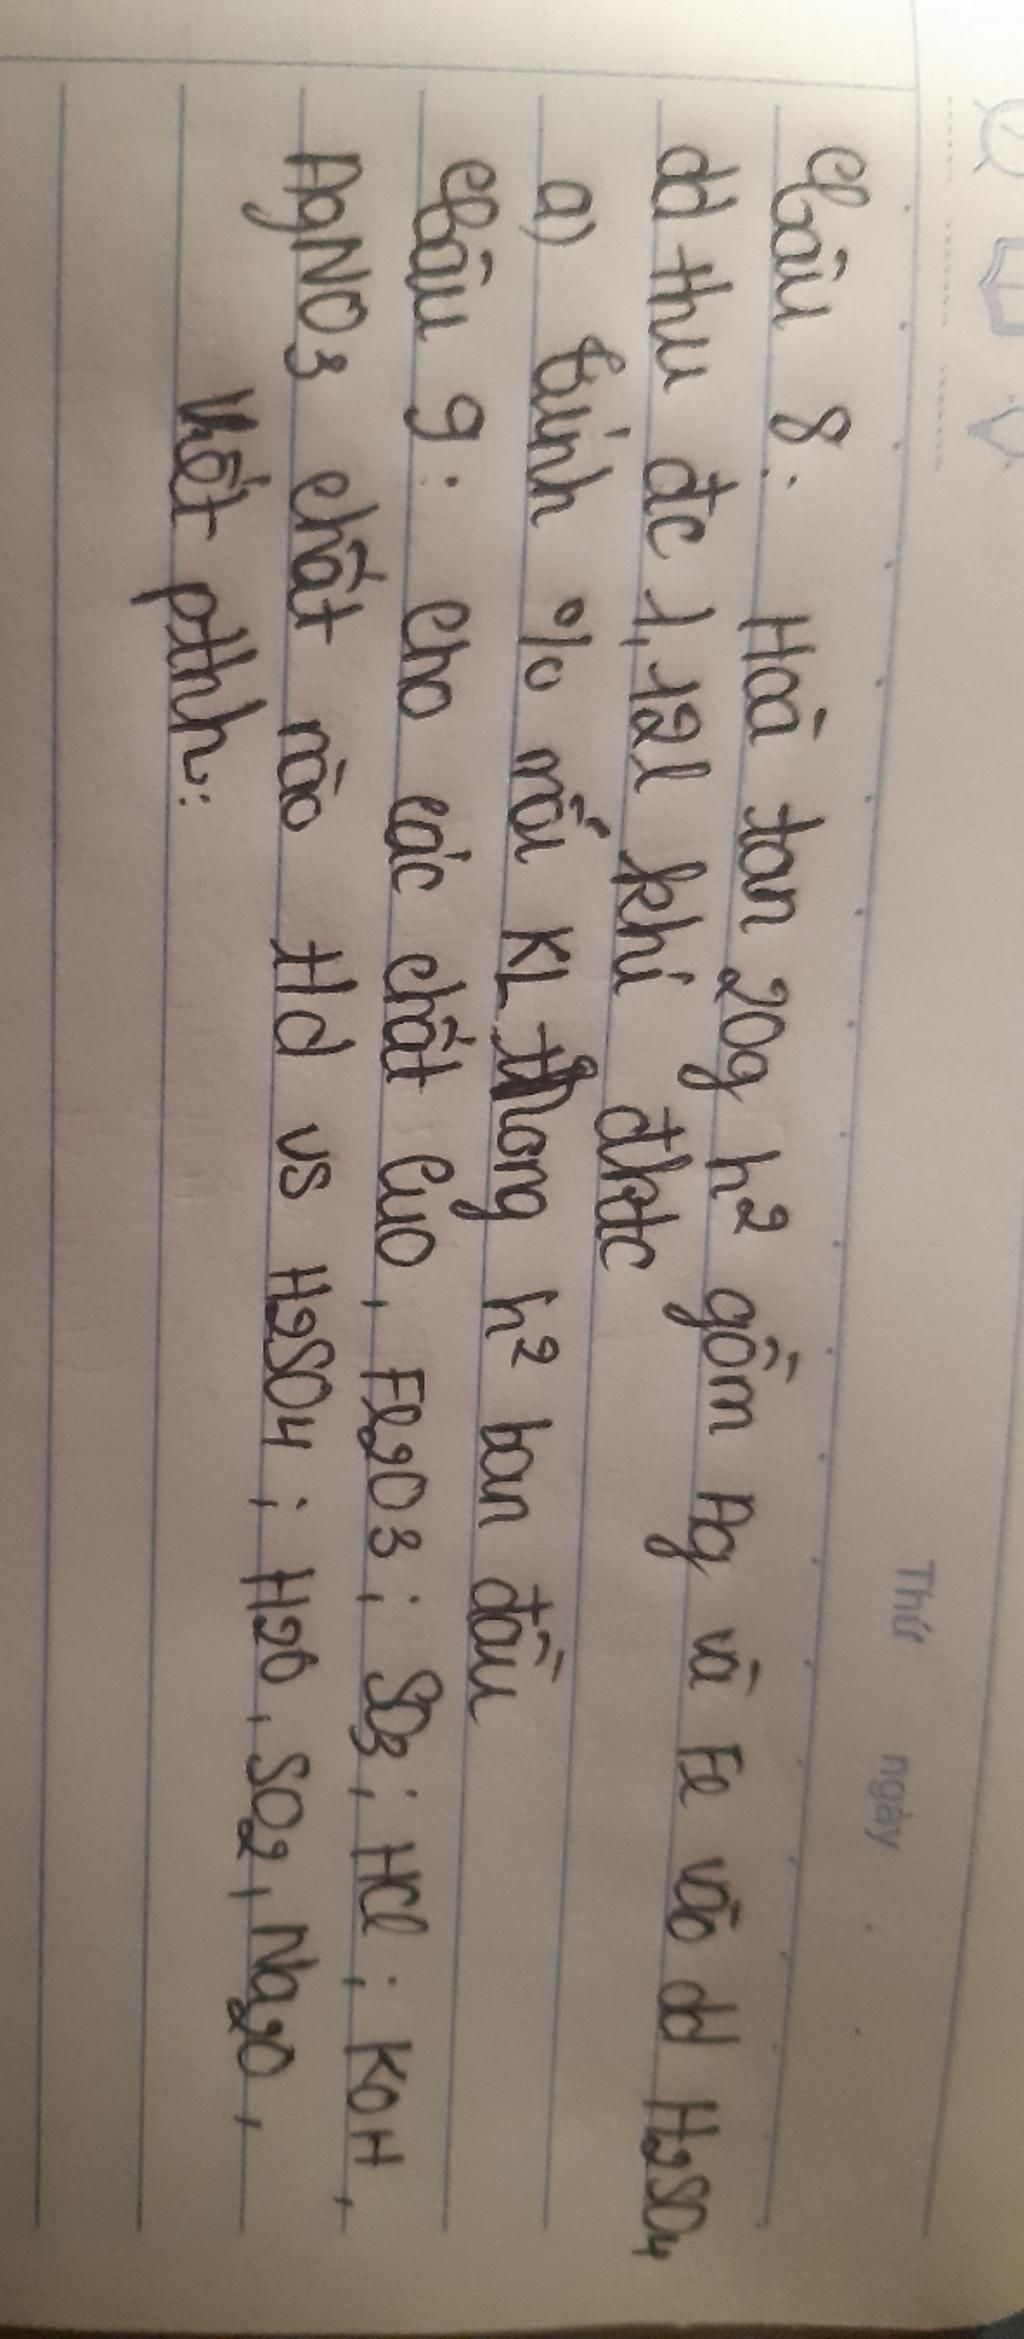 Thứ ngày
Câu 8: Hoà tan 20g h² gồm Ag và Fe vào dd H2SO4
dd thu đc 1,12l khí đktc
a) Tính % mỗi KL trong h² ban đầu
Câu 9: Cho các chất CuO, Fe2O3; SO3; HCl; KOH,
AgNO3 chất nào td vs H2SO4; H2O, SO2, Na2O,
Viết pthh: